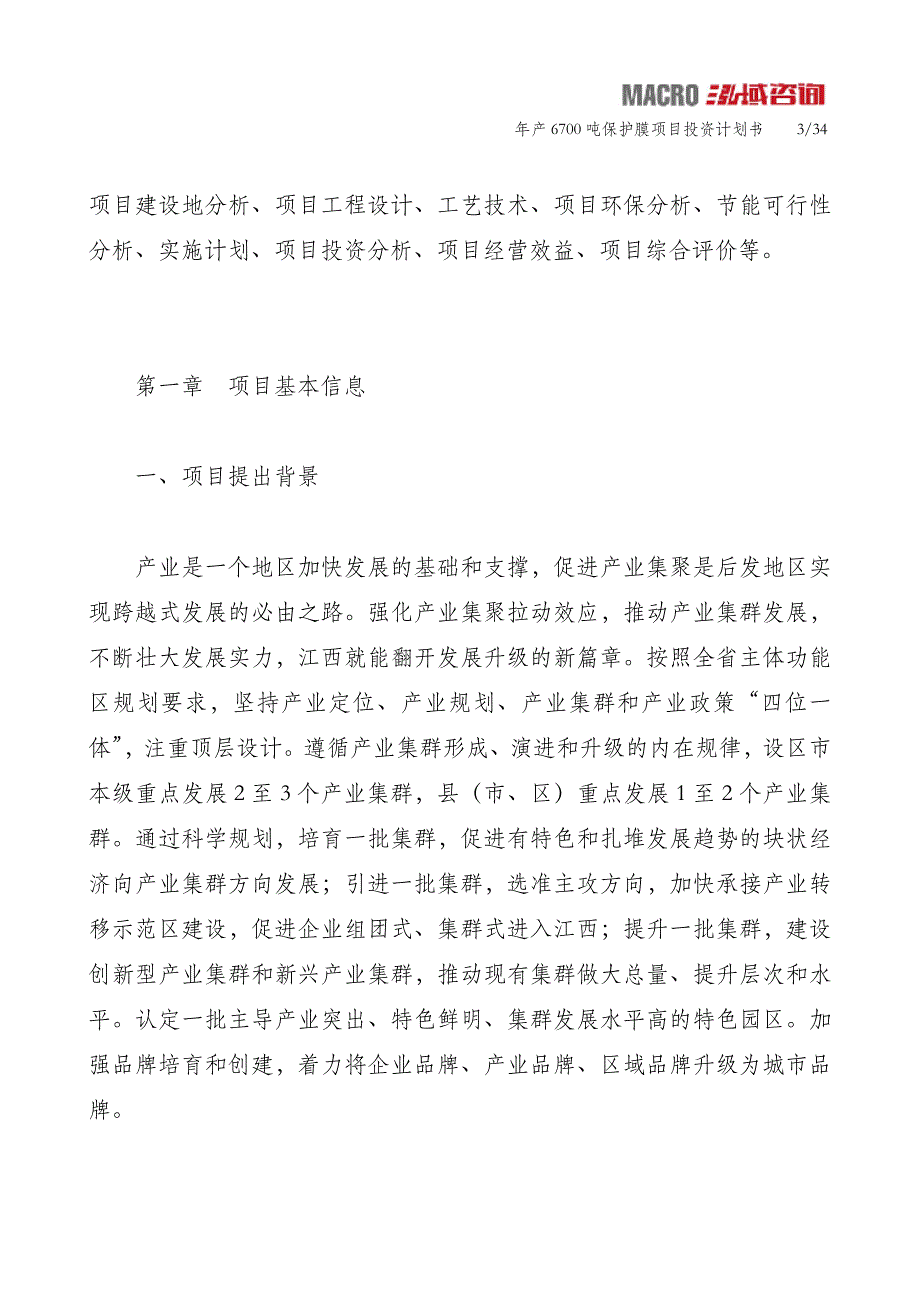 MACRO 泓域咨询
年产 6700 吨保护膜项目投资计划书 3/34
项目建设地分析、项目工程设计、工艺技术、项目环保分析、节能可行性
分析、实施计划、项目投资分析、项目经营效益、项目综合评价等。
第一章 项目基本信息
一、项目提出背景
产业是一个地区加快发展的基础和支撑，促进产业集聚是后发地区实
现跨越式发展的必由之路。强化产业集聚拉动效应，推动产业集群发展，
不断壮大发展实力，江西就能翻开发展升级的新篇章。按照全省主体功能
区规划要求，坚持产业定位、产业规划、产业集群和产业政策“四位一
体”，注重顶层设计。遵循产业集群形成、演进和升级的内在规律，设区市
本级重点发展 2 至 3 个产业集群，县（市、区）重点发展 1 至 2 个产业集
群。通过科学规划，培育一批集群，促进有特色和扎堆发展趋势的块状经
济向产业集群方向发展；引进一批集群，选准主攻方向，加快承接产业转
移示范区建设，促进企业组团式、集群式进入江西；提升一批集群，建设
创新型产业集群和新兴产业集群，推动现有集群做大总量、提升层次和水
平。认定一批主导产业突出、特色鲜明、集群发展水平高的特色园区。加
强品牌培育和创建，着力将企业品牌、产业品牌、区域品牌升级为城市品
牌。